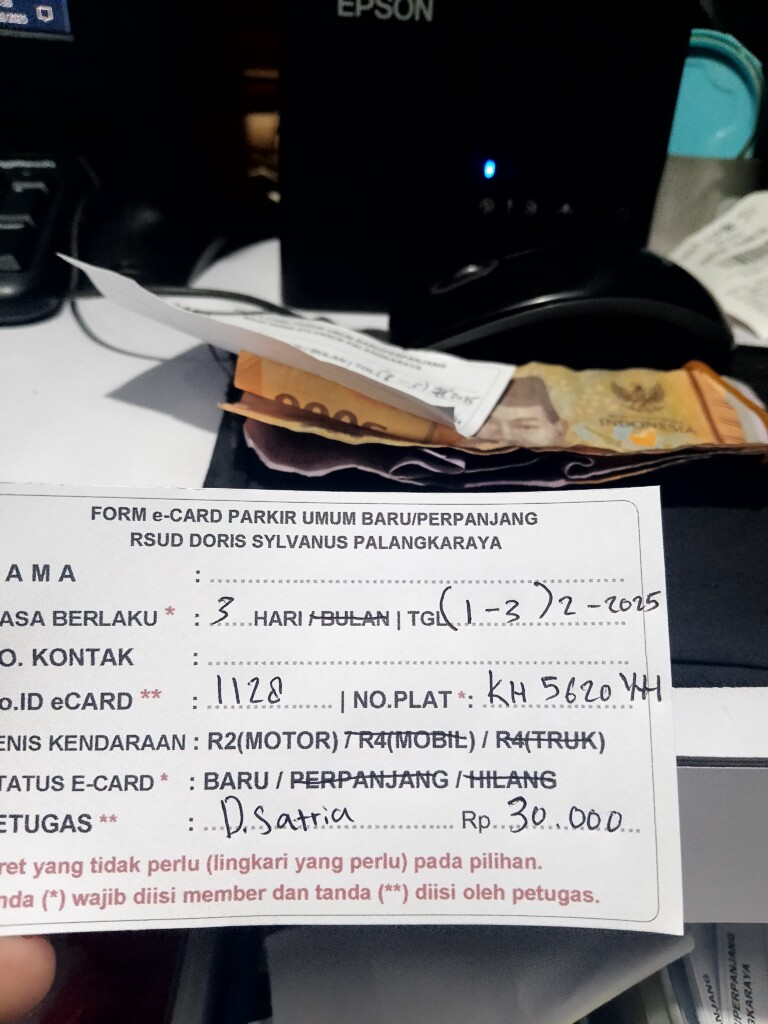 EPSON
PARKIR UMUM BARU/PERPANJANG
SYLVANUS PALANGKARAYA
INDONESIA
FORM e-CARD PARKIR UMUM BARU/PERPANJANG
RSUD DORIS SYLVANUS PALANGKARAYA
AMA : 
ASA BERLAKU * : 3 HARI / BULAN | TGL (1-3) 2-2025
O. KONTAK :
o.ID eCARD ** : 1128 | NO.PLAT *: KH 5620 YH
ENIS KENDARAAN : R2(MOTOR) / R4(MOBIL) / R4(TRUK)
TATUS E-CARD * : BARU / PERPANJANG / HILANG
ETUGAS ** : D.Satria Rp 30.000
ret yang tidak perlu (lingkari yang perlu) pada pilihan.
nda (*) wajib diisi member dan tanda (**) diisi oleh petugas.
/PERPANJANG